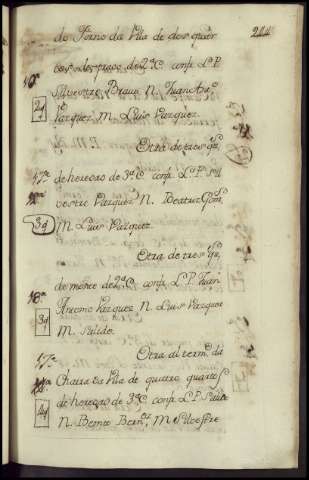 244
do Forno da Vila de dos quar
tos des prado de 2ª C. conf. L. P.
Silvestre N. Juan Anto
Vazquez M. Luis Vazquez.
2q
Otra de tres qs
57ª
de heredad de 3ª C. conf. L. P. Sil
vestre Vazquez N. Beatriz Gomz
M. Luis Vazquez
3q
Otra de tres qs
de monte de 2ª C. conf. L. P. Juan
58ª
Antonio Vazquez N. Luis Vazquez
M. Salido.
3q
57ª
Otra al termo da
Chaira da Vila de quatro quartos
de heredad de 3ª C. conf. L. P.
4q
N. Benito M. Silvestre